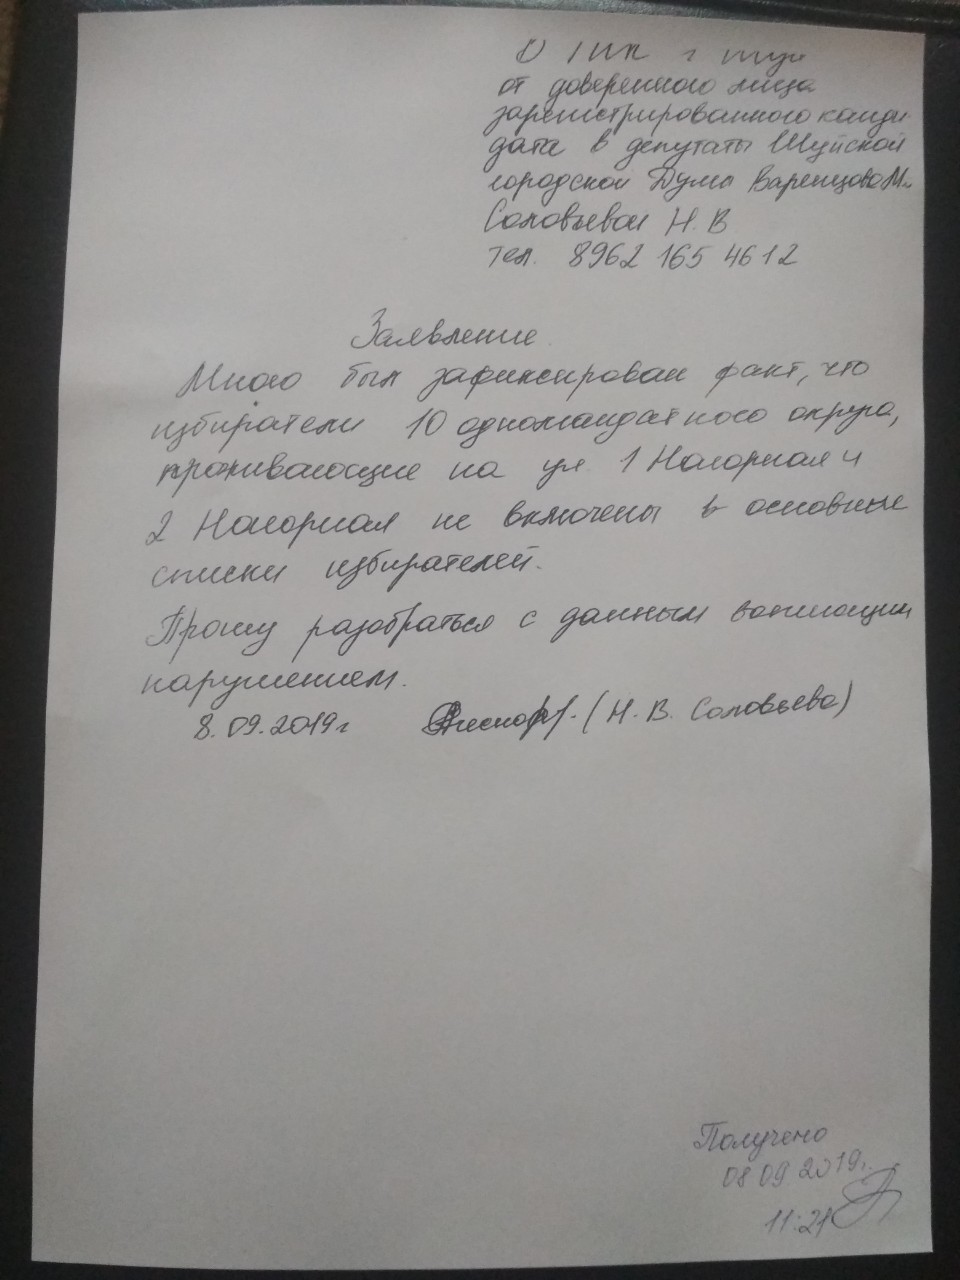 от доверенного лица
зарегистрированного канди
дата в депутаты Шуйской
городской Думы Варенцова М.
Соловьевой Н. В
тел. 8962 165 4612
Заявление.
Мною был зафиксирован факт, что
избиратели 10 одномандатного округа,
проживающие на ул. 1 Нагорная и
2 Нагорная не включены в основные
списки избирателей.
Прошу разобраться с данным вопиющим
нарушением.
8.09.2019г (Н. В. Соловьева)
Получено
08 09 2019г.
11:21